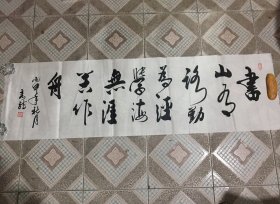 書
山有
路勤
為徑
學海
無涯
苦作
舟
丙申年秋月